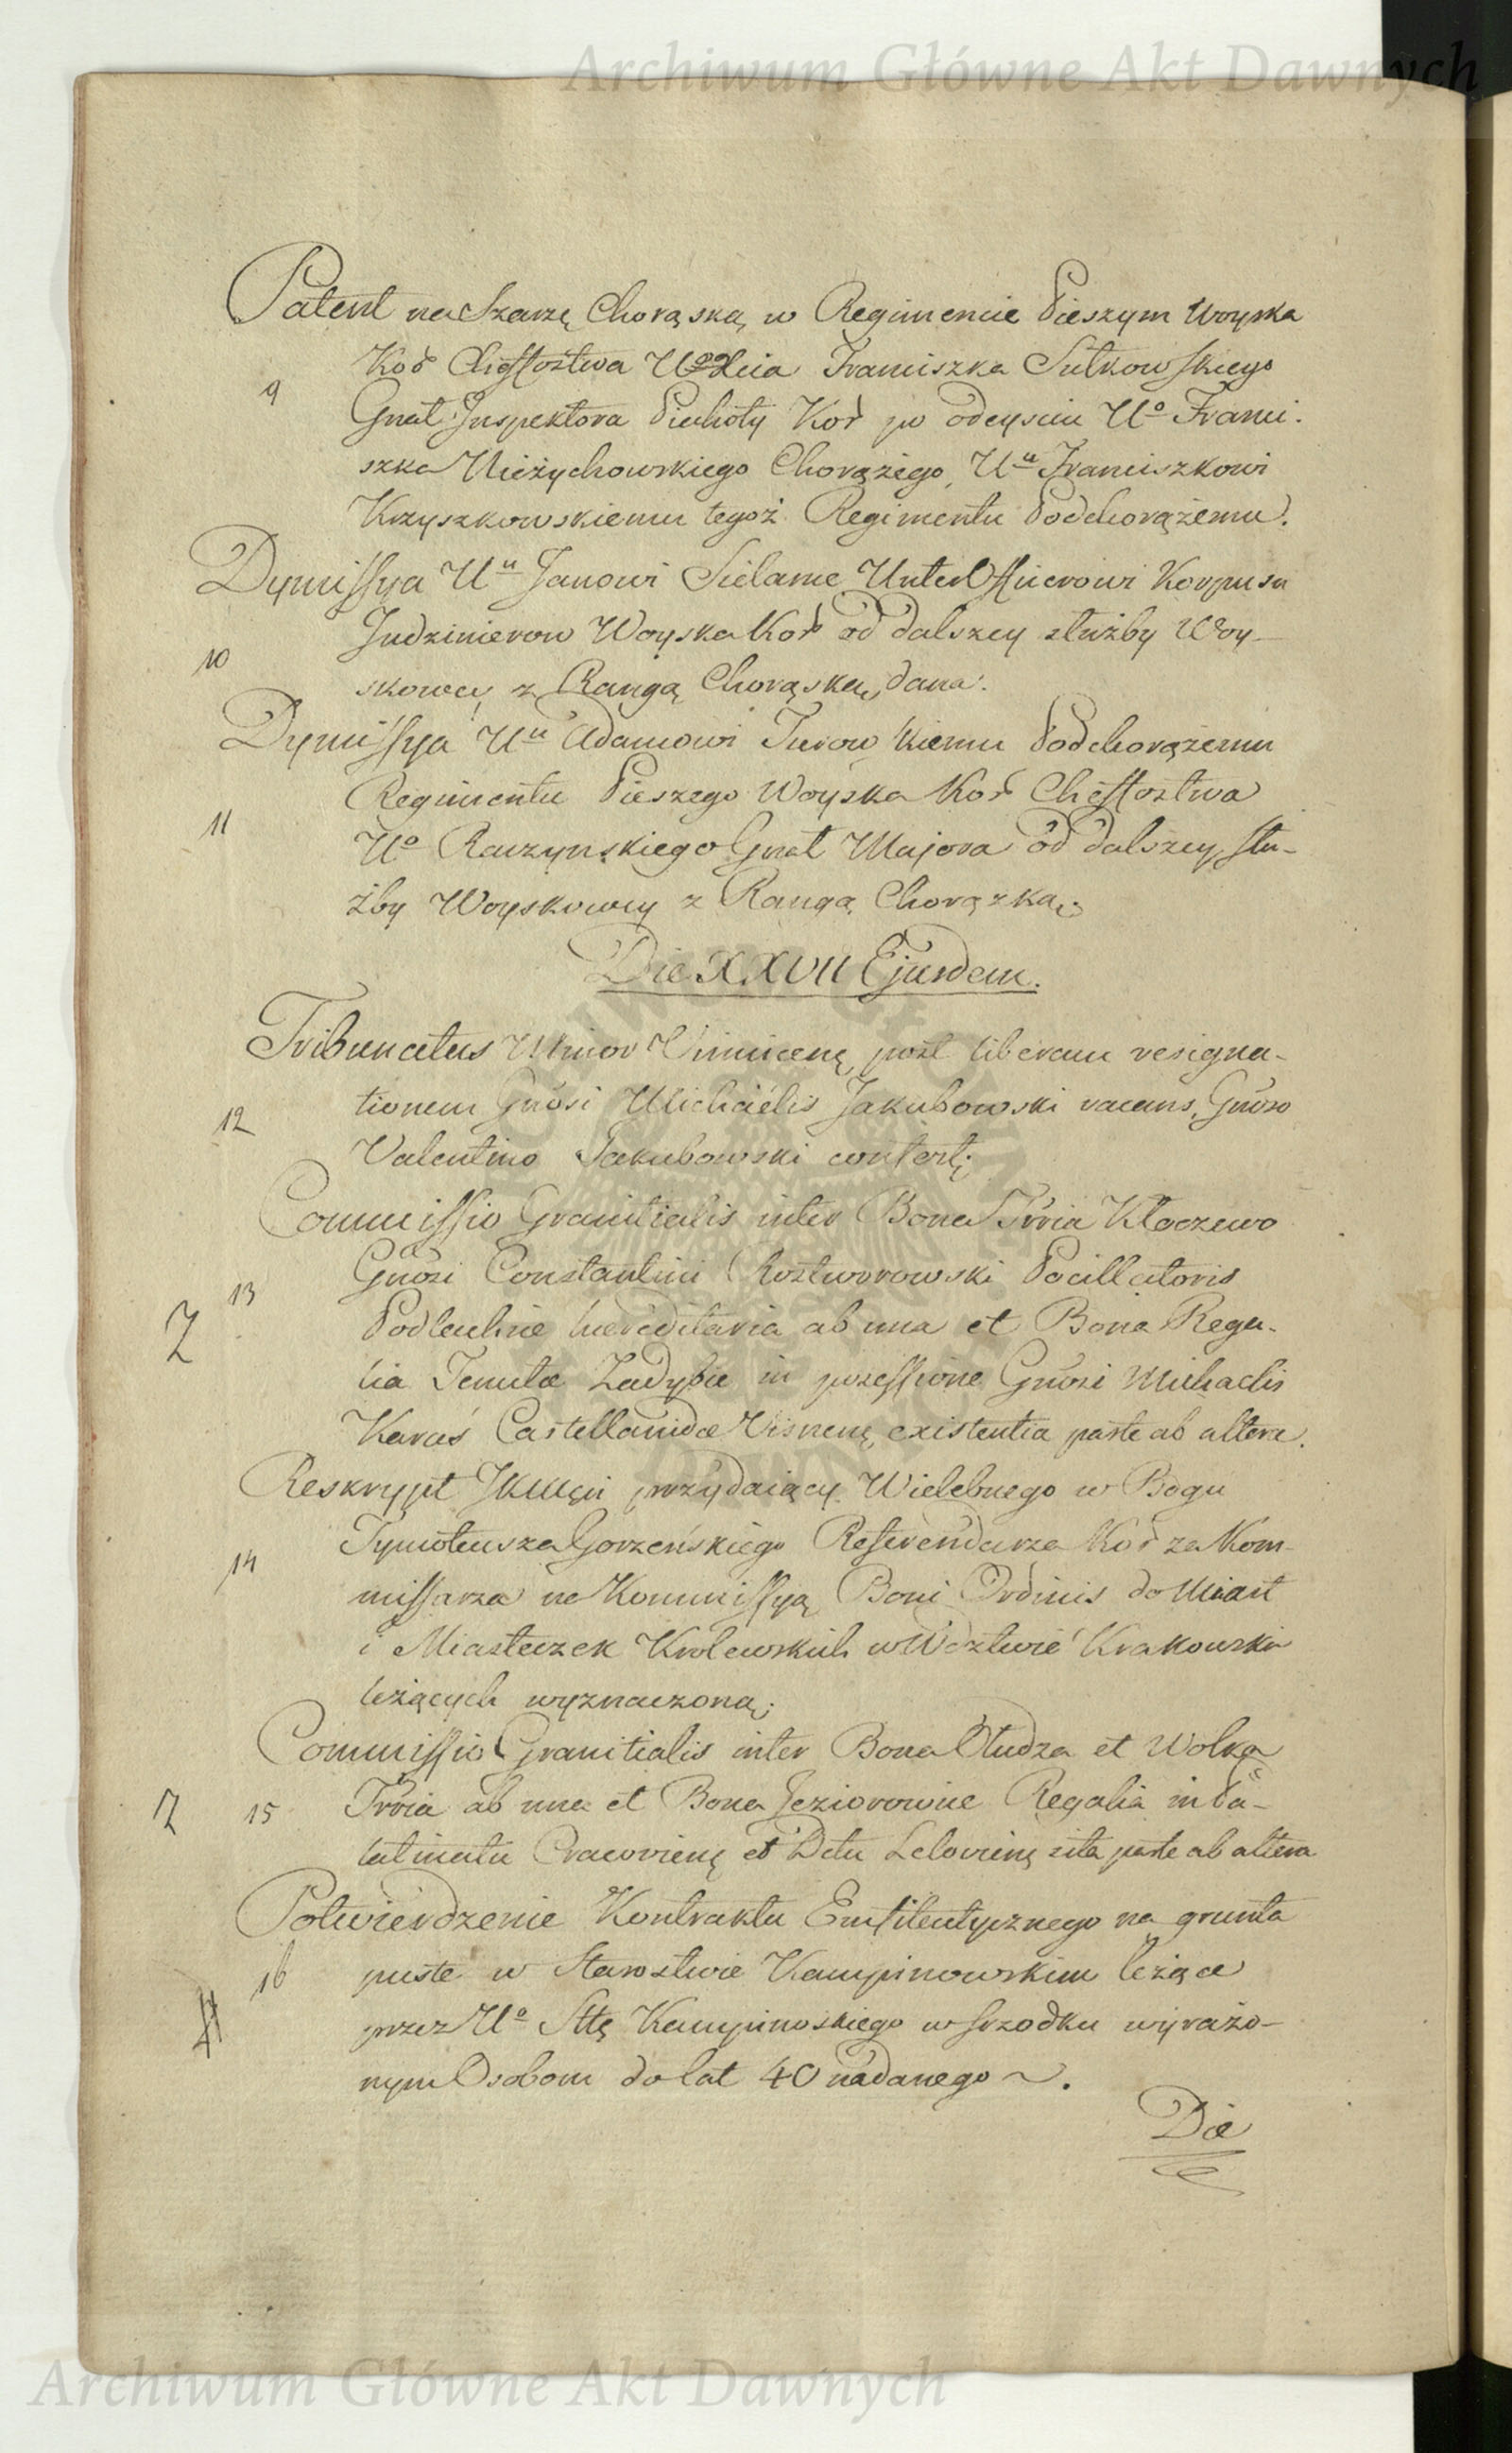 Archiwum Główne Akt Dawnych
Patent na Szarżę Chorąską w Regimencie Pieszym Woyska
Kor Cheffostwa Franciszka Sułkowskiego
9
Gnał Inspektora Piechoty Kor po odeysciu Uo Franci-
szka Nieżychowskiego Chorążego, Uu Franciszkowi
Krzyszkowskiemu tegoż Regimentu Podchorążemu.
Dymissya Uu Janowi Sielanie Unterofficerowi Korpusu
Indzinierow Woyska Kor od dalszey służby Woy-
10
skowey z Rangą Chorąską, dana.
Dymissya Uu Adamowi Turowskiemu Podchorążemu
Regimentu Pieszego Woyska Kor Cheffostwa
11
Uo Raczynskiego Gnał Majora od dalszey słu-
żby Woyskowey z Rangą Chorązką;
Die XXVII Ejusdem.
Tribunatus Minor post liberam resigna-
tionem Gnosi Michaelis Jakubowski vacans, Gnoso
12
Valentino Jakubowski confert;
Commissio Granitialis inter Bona Trria Kłoczewo
Gnosi Constantini Roztworowski Pocillatoris
13
Z
Podlachiæ hæreditaria ab una et Bona Rega-
lia Tenutæ Zadybie in possessione Gnosi Michaelis
Karaś Castellanidæ Visnenę existentia parte ab altera.
Reskrypt JKMCi przydaiący Wielebnego w Bogu
Tymoteusza Gorzeńskiego Referendarza Kor za Kom-
14
missarza na Kommissyą Boni Ordinis do Miast
i Miasteczek Krolewskich w Wdztwie Krakowskim
leżących wyznaczoną;
Commissio Granitialis inter Bona Otudza et Wolka
Z 15 Trria ab una et Bona Jeziorowice Regalia in Pa-
latinatu Cracovienę et Dctu Lelovienę sita parte ab altera
Potwierdzenie Kontraktu Emfiteutycznego na grunta
16 puste w Starostwie Kampinowskim leżące
przez Uo Sttę Kampinoskiego w srzodku wyrażo-
nym Osobom do lat 40 nadanego ~.
Die
Archiwum Główne Akt Dawnych